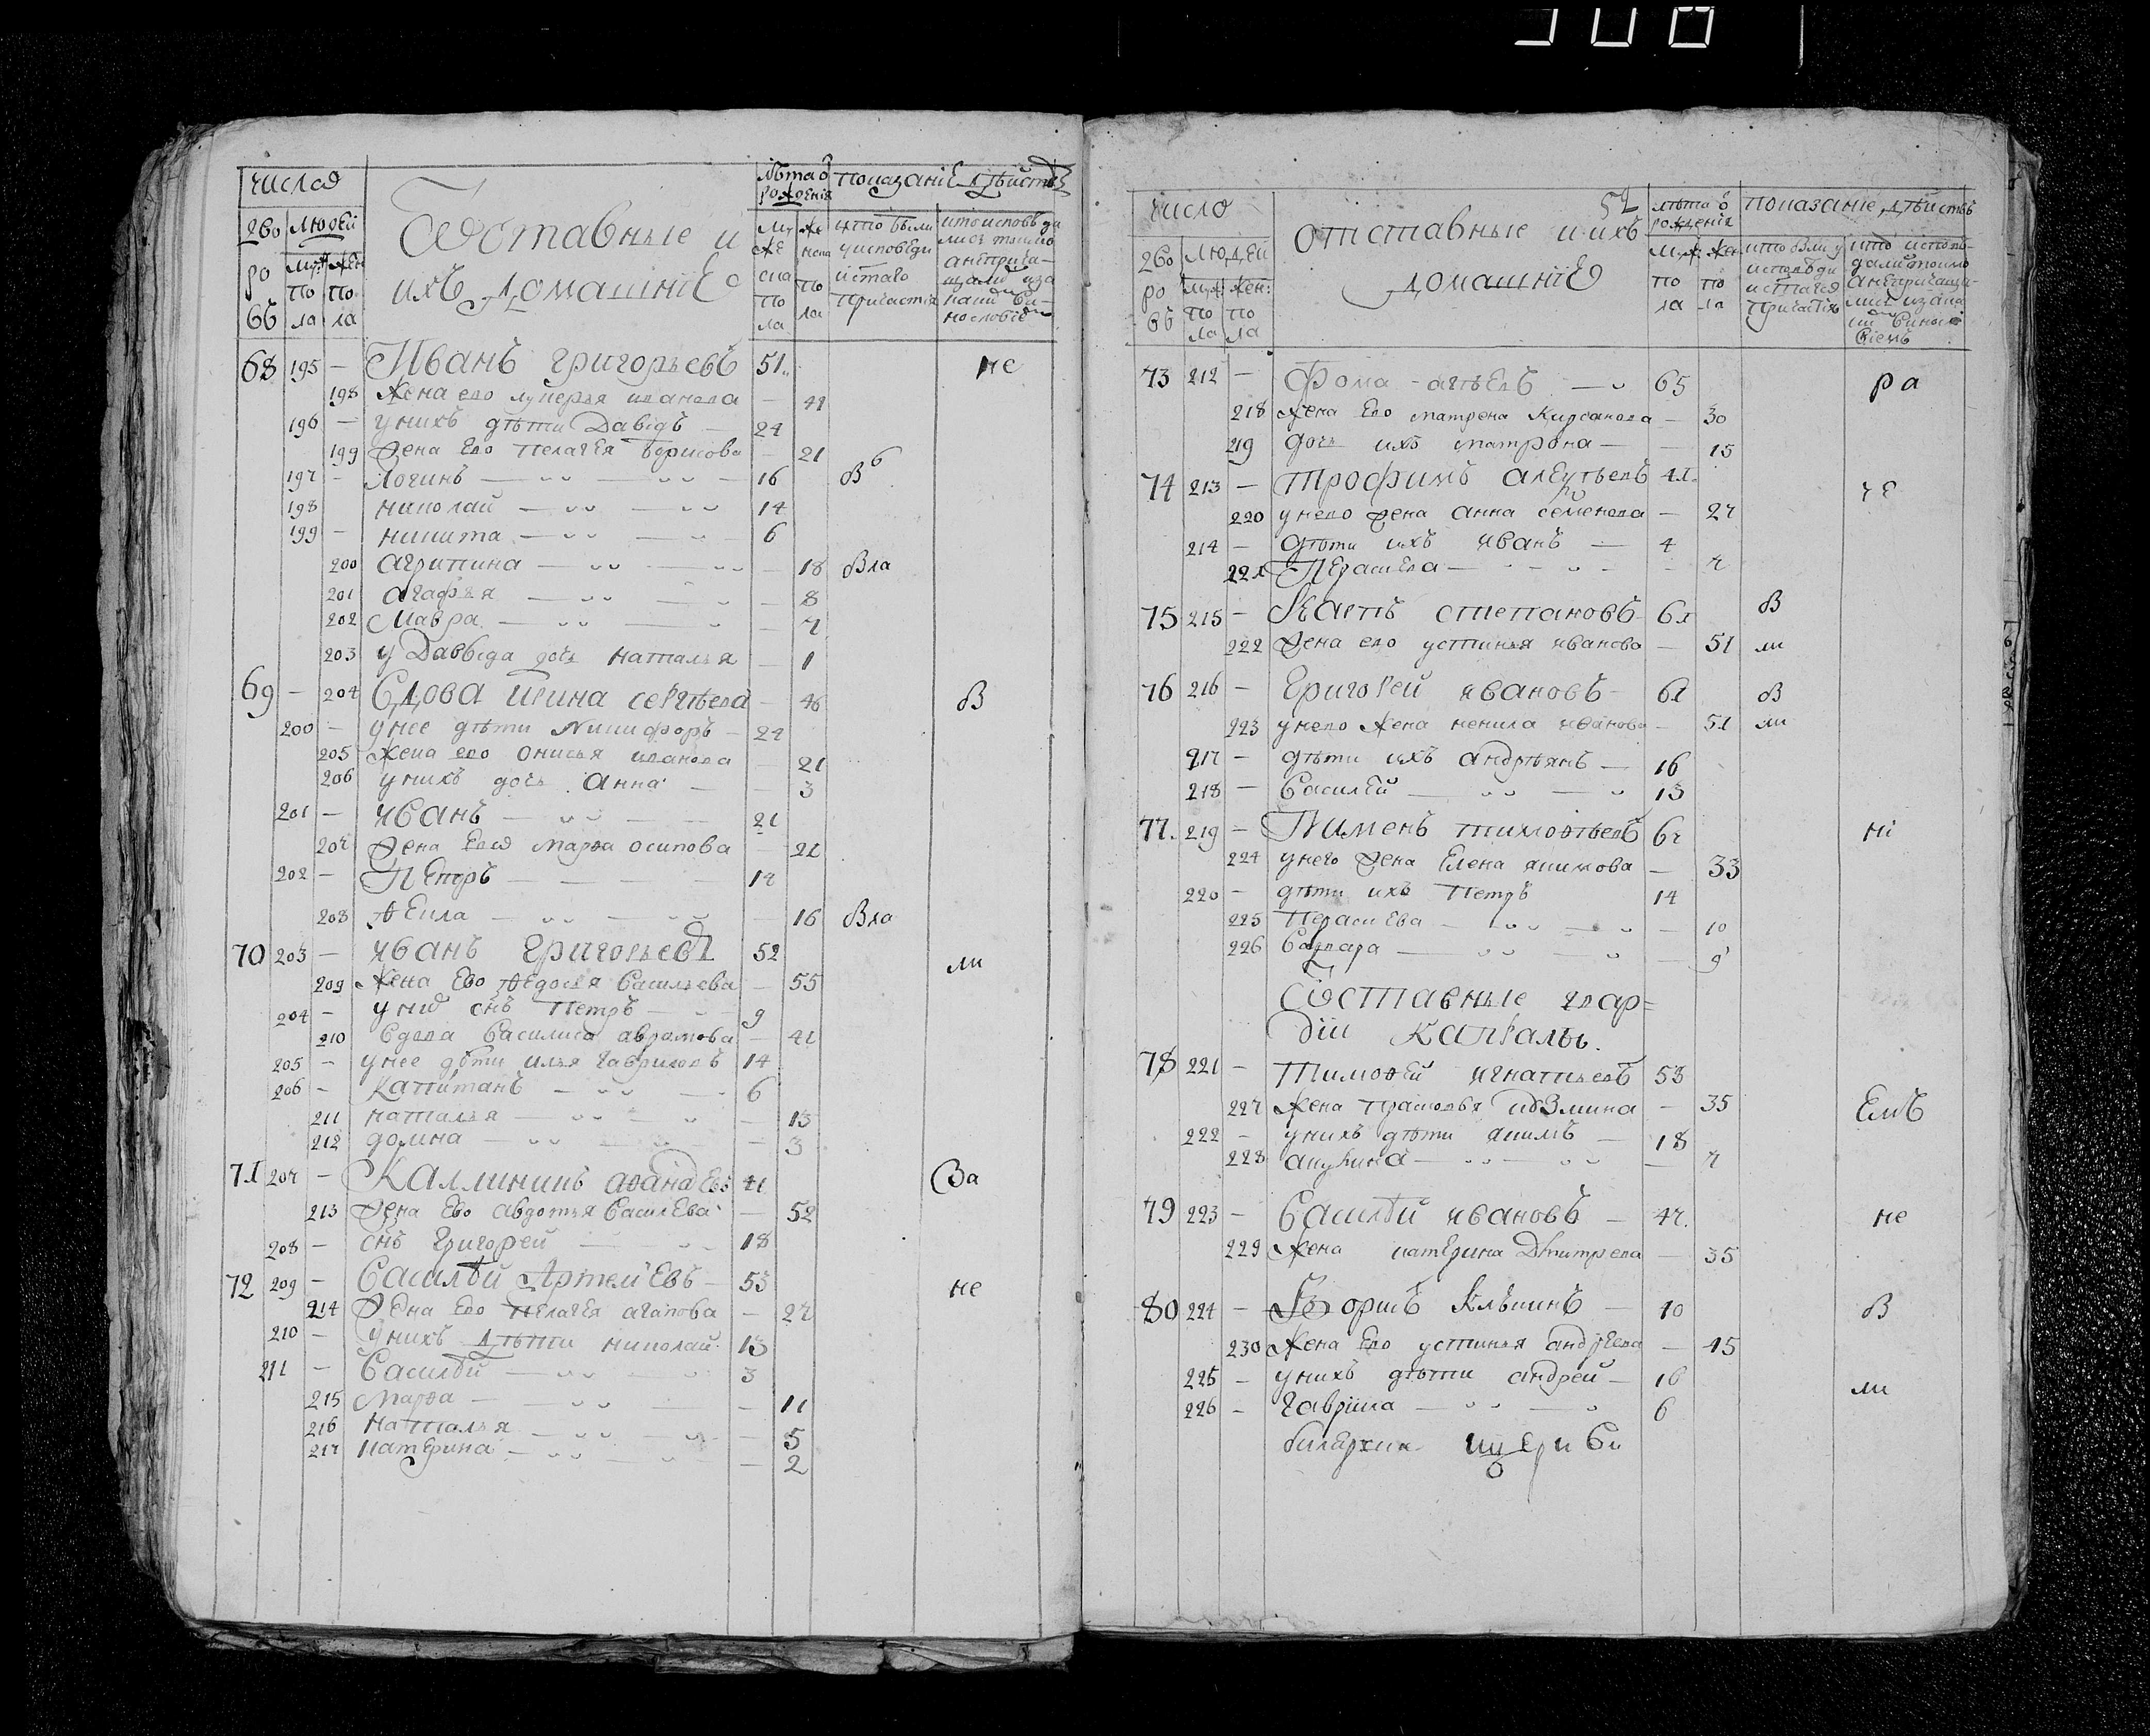 числа
дворовъ людей
муж: жен:
пола пола
Отставные и
ихъ домашніе
Лѣта ѿ
рожденія
му
же
ска
по
ла
же
нска
по
ла
показаніе дѣйствъ
кто были
у исповеди
и стаго
причастія
кто исповѣда
лись токмо
а неприча-
щались и за
каким ви-
нословіем
68 195 — Иванъ григорьевъ 51 не
198 Жена ево лукерья иванова — 41
196 — у нихъ дѣти Давидъ — 24
199 Жена ево пелагея борисова — 21
197 — Логинъ — 16 в
198 николай — 14
199 — никита — 6
200 агрипина — 18 вла
201 агафья — 8
202 Мавра — 7
203 у Давыда дочь наталья — 1
69 — 204 Вдова ирина сергѣева — 46 в
200 — у нее дѣти Никифоръ — 24
205 жена ево онисья иванова — 21
206 у нихъ дочь анна — 3
201 — иванъ — 21
207 Жена ево марѳа осипова — 21
202 — Петръ — 17
208 Ѳекла — 16 вла
70 203 — иванъ григорьевъ 52 ли
209 Жена ево ѳедосья васильева — 55
204 — у них снъ петръ — 9
210 вдова василиса аврамова — 41
205 — у нее дѣти илья гавриловъ 14
206 — капитанъ — 6
211 наталья — 13
212 домна — 3
71 207 — Каллиникъ аѳанасьевъ 41 За
213 Жена ево авдотья василева — 52
208 — снъ григорей — 18
72 209 — василѣй Артемьевъ — 53 не
214 Жена ево пелагея агапова — 27
210 — у нихъ дѣти николай 13
211 — василѣй — 3
215 марѳа — 11
216 наталья — 5
217 катерина — 2
число
дворовъ людей
муж: жен:
пола пола
52
отставные и ихъ
домашніе
лѣта ѿ
рождения
муж. жен.
по по
ла ла
показаніе дѣйствъ
кто были у
исповѣди
и стаго
причастія
кто исповѣ-
дались токмо
а непричаща-
лись и за как
им винос
віемъ
73 212 — фома агѣевъ — 65 ра
218 жена ево матрена Кирсанова — 30
219 дочь ихъ матрона — 15
74 213 — трофимъ алеѵтьевъ 41 че
220 у нево жена анна семенова — 27
214 — дѣти ихъ иванъ — 4
221 Парасковья — 7
75 215 — Карпъ степановъ 61 в
222 Жена ево устинья иванова — 51 ли
76 216 — григорей ивановъ 61 в
223 у нево жена ненила иванова — 51 ли
217 — дѣти ихъ андрѣянъ — 16
218 — василѣй — 13
77. 219 — Пименъ тимоѳѣевъ 67 ні
224 у него жена Елена якимова — 33
220 — дѣти ихъ петръ 14
225 Парасковья — 10
226 варвара — 9
Ѿставные гвар=
діи капралы.
78 221 — Тимоѳей игнатьевъ 53
227 Жена прасковья козмина — 35 Емъ
222 — у нихъ дѣти якимъ — 18
228 акулина — 7
79 223 — василѣй ивановъ — 47. не
229 жена катерина Дмитрева — 35
80 224 — Борисъ Ильинъ — 10 в
230 жена ево устинья андреева — 45
225 — у нихъ дѣти андрей — 16
226 — гаврила — 6 ли